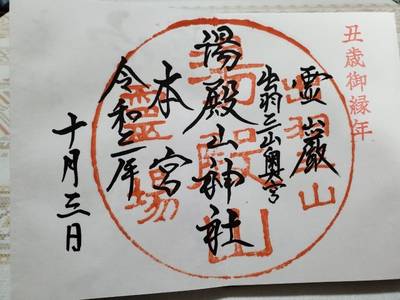 丑歳御縁年
霊巌
出羽三山奥宮
湯殿山神社
本宮
令和二年
十月三日
湯殿山